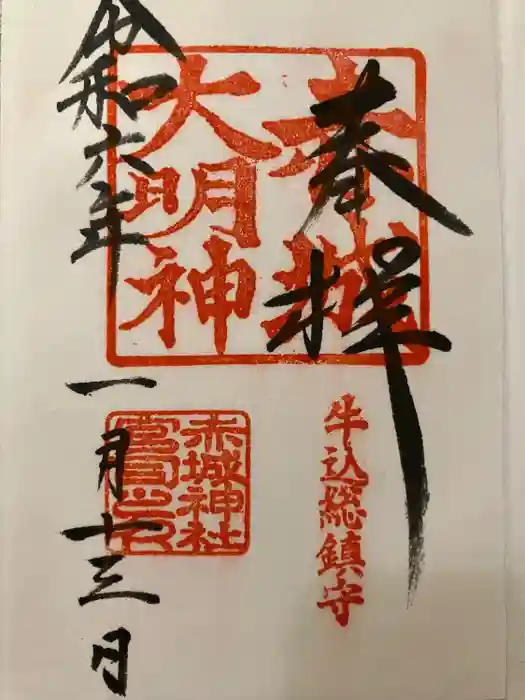 奉拝
赤城
大明神
牛込総鎮守
赤城神社
宮司之印
令和六年
一月十三日